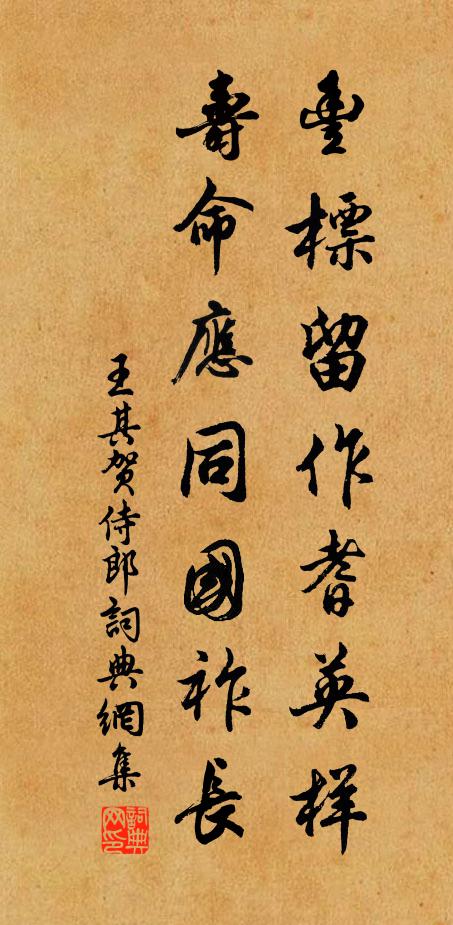 豊標留作耆英样
壽命應同國祚長
王其賀侍郎詞典網集
詞典网印